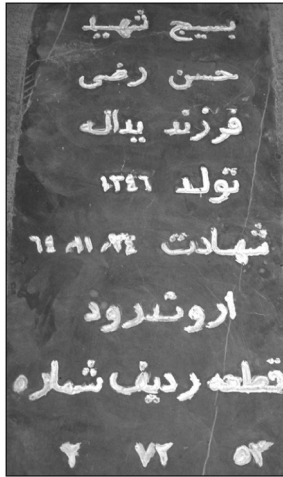 بسیج شهید
حسن رضی
فرزند یداله
تولد ۱۳۴۶
شهادت ۲۴ /۱۱/ ۶۴
اروندرود
قطعه ردیف شماره
۵۳ ۷۲